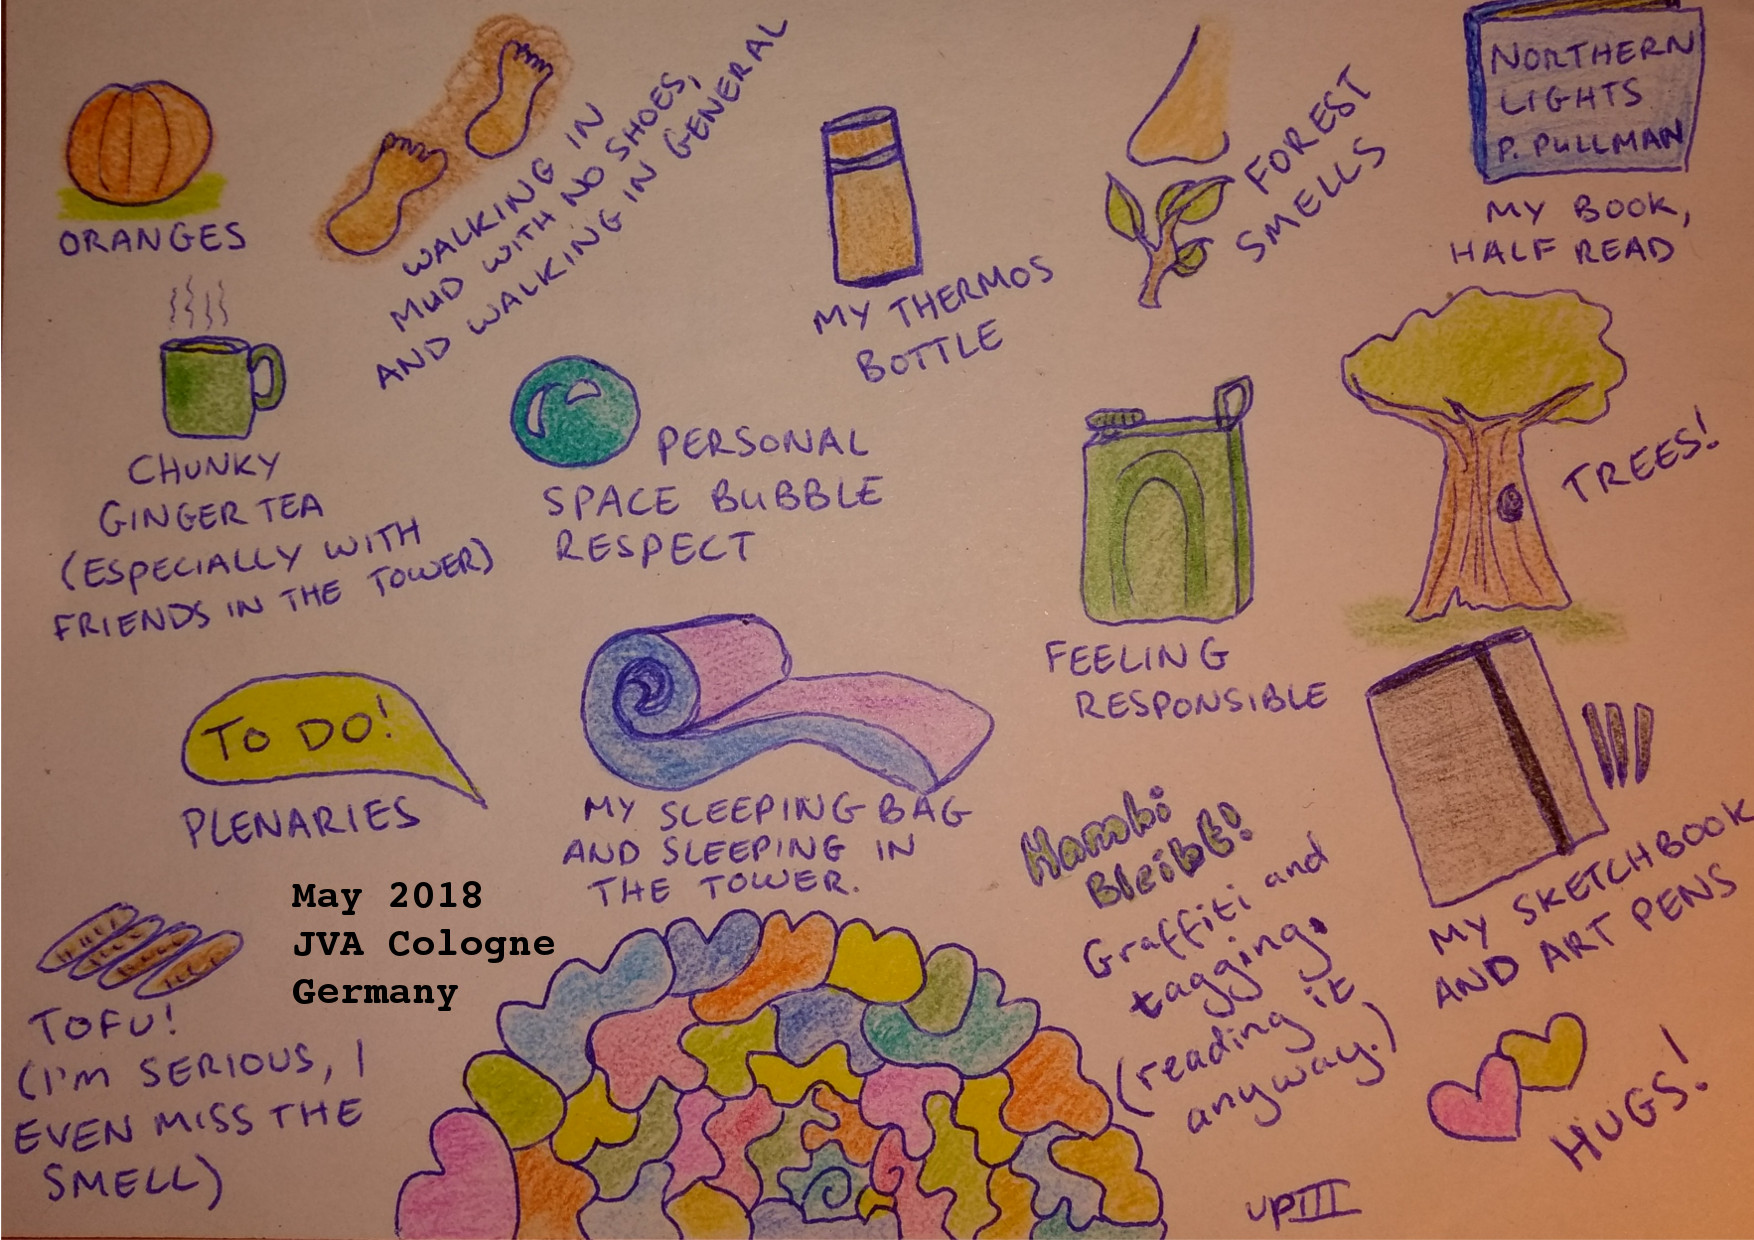 ORANGES
WALKING IN
MUD WITH NO SHOES,
AND WALKING IN GENERAL
MY THERMOS
BOTTLE
FOREST
SMELLS
NORTHERN
LIGHTS
P. PULLMAN
MY BOOK,
HALF READ
CHUNKY
GINGER TEA
(ESPECIALLY WITH
FRIENDS IN THE TOWER)
PERSONAL
SPACE BUBBLE
RESPECT
FEELING
RESPONSIBLE
TREES!
TO DO!
PLENARIES
MY SLEEPING BAG
AND SLEEPING IN
THE TOWER.
Hambi
Bleibt!
Graffiti and
tagging.
(reading it
anyway.)
MY SKETCHBOOK
AND ART PENS
May 2018
JVA Cologne
Germany
TOFU!
(I'M SERIOUS, I
EVEN MISS THE
SMELL)
HUGS!
UPIII